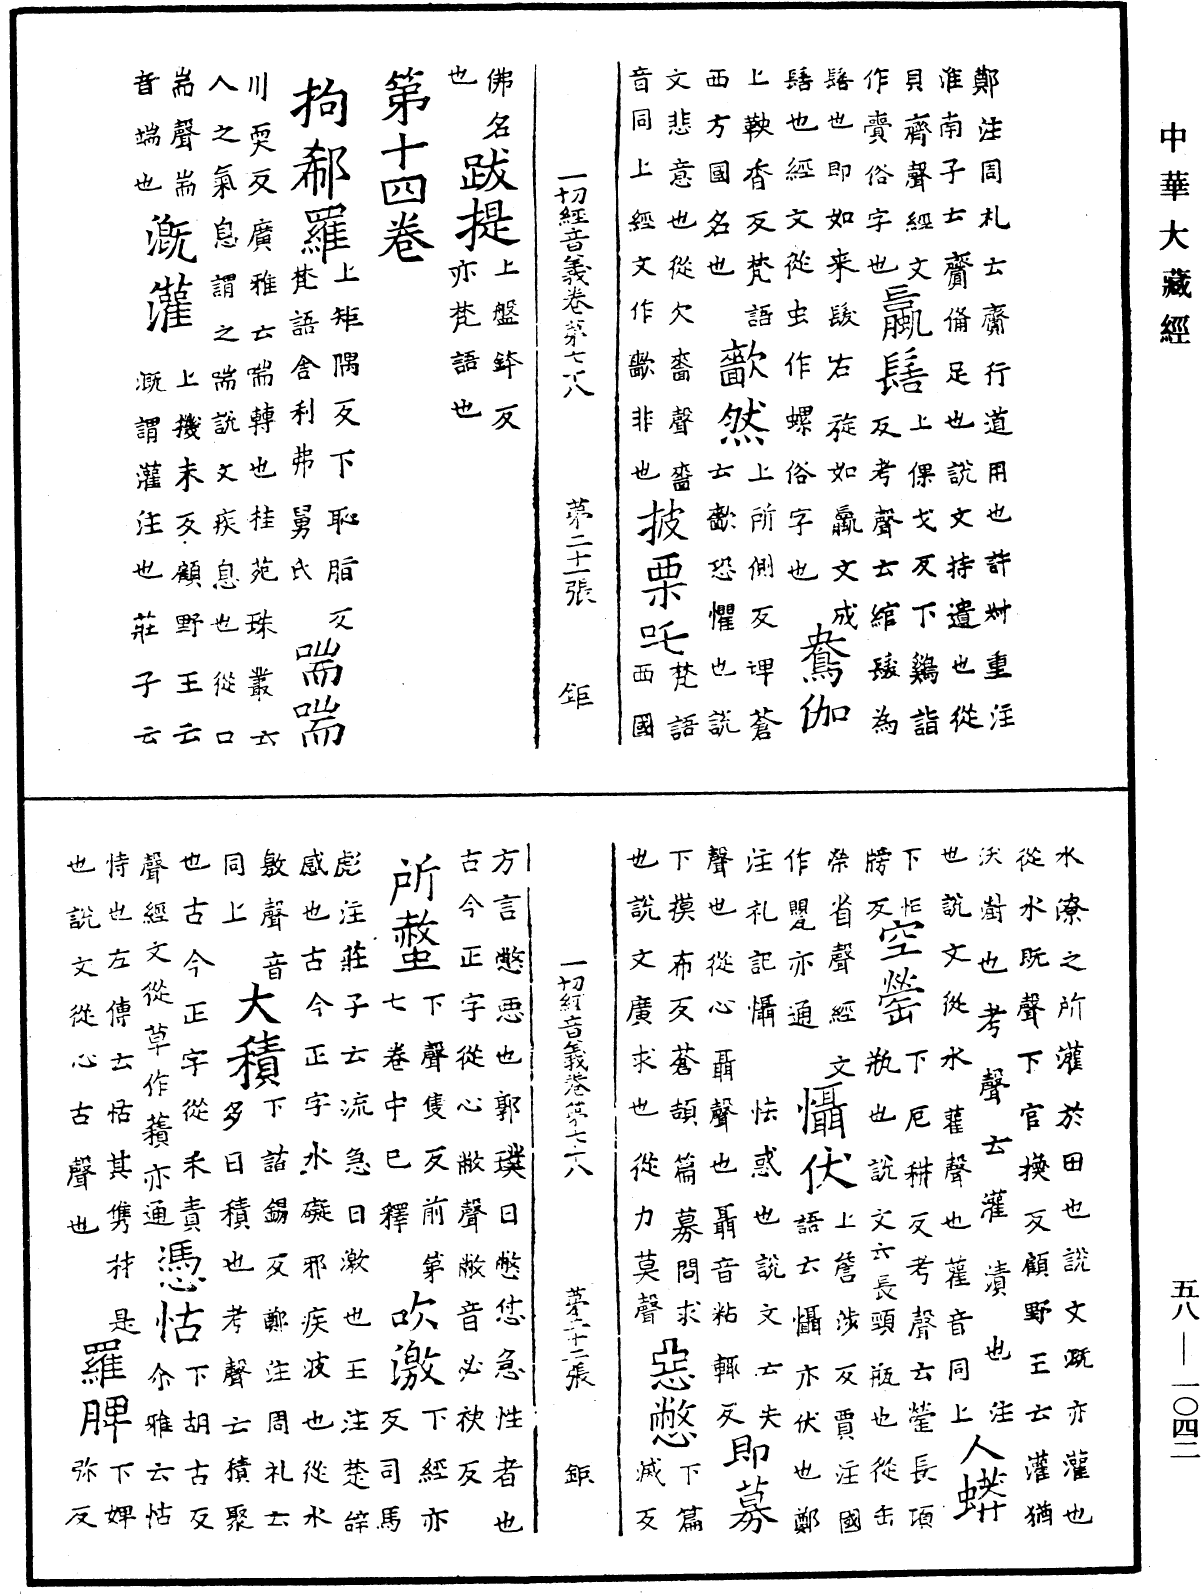 中華大藏經
鄭注周礼云齎行道用也許姝重注
淮南子士齎俻足也說文持遺也從
貝齊聲經文蠃髻上倮戈反下鷄詣
作賷俗字也反考聲云綰髮為
髻也即如来髮右旋如蠃文成
髻也經文從虫作螺俗字也鴦伽
上鞅香反梵語歕然上所側反埤蒼
西方國名也云歕恐懼也說
文悲意也從欠嗇聲嗇披栗吒梵語
音同上經文作歕非也西國
一切經音義卷第七十八 第二十一張 鉅
佛名跋提上盤鉢反
也亦梵語也
第十四卷
拘郗羅上矩隅反下恥脂反喘喘
梵語舍利弗舅氏
川耎反廣雅云喘轉也桂苑珠叢云
人之氣息謂之喘說文疾息也從口
耑聲耑溉灌上機未反顧野王云
音端也溉謂灌注也莊子云
水潦之所灌於田也說文溉亦灌也
從水既聲下官換反顧野王云灌猶
沃澍也考聲云灌漬也注人蟒
也說文從水雚聲也雚音同上
下忙空罃下厄耕反考聲云罃長項
牓反瓶也說文云長頸瓶也從缶
榮省聲經文懾伏上詹涉反賈注國
作甖亦通語云懾亦伏也鄭
注礼記懾怯惑也說文云失即募
聲也從心聶聲也聶音粘輒反
下摸布反蒼頡篇募問求惡憋下篇
也說文廣求也從力莫聲滅反
一切經音義卷第七十八 第二十二張 鉅
方言憋悪也郭璞曰憋恷急性者也
古今正字從心敝聲敝音必袂反
所螫下聲隻反前第吹激下經亦
七卷中已釋反司馬
彪注莊子云流急曰激也王注楚辝
感也古今正字水礙邪疾波也從水
敫聲音大積下詰錫反鄭注周礼云
同上多曰積也考聲云積聚
也古今正字從禾責憑怙下胡古反
聲經文從草作𧂐亦通尒雅云怙
恃也左傳云怙其雋材是羅脾下婢
也說文從心古聲也弥反
五八—一〇四二